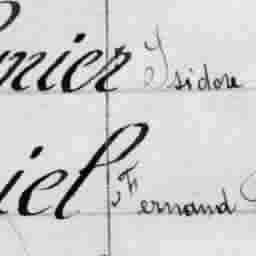 nier Isidore
iel Fernand